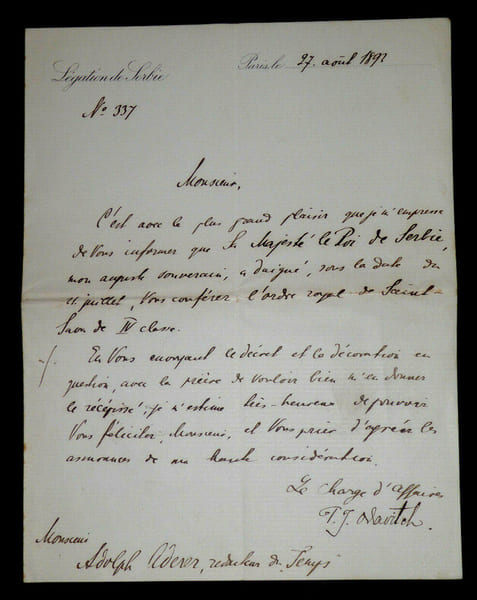 Légation de Serbie
Paris, le 27. août 1892
No 337
Monsieur,
C'est avec le plus grand plaisir que je m'empresse
de Vous informer que Sa Majesté le Roi de Serbie,
mon auguste souverain, a daigné, sous la date du
juillet, Vous conférer l'ordre royal de Saint-
Savon de IV classe.
En Vous envoyant le décret et la décoration en
question, avec la prière de vouloir bien m'en donner
le récépissé, je m'estime très-heureux de pouvoir
Vous féliciter, Monsieur, et Vous prier d'agréer les
assurances de ma haute considération.
Le Chargé d'affaires
T. J. Odavitch.
Monsieur
Adolph Aderer, redacteur du Temps